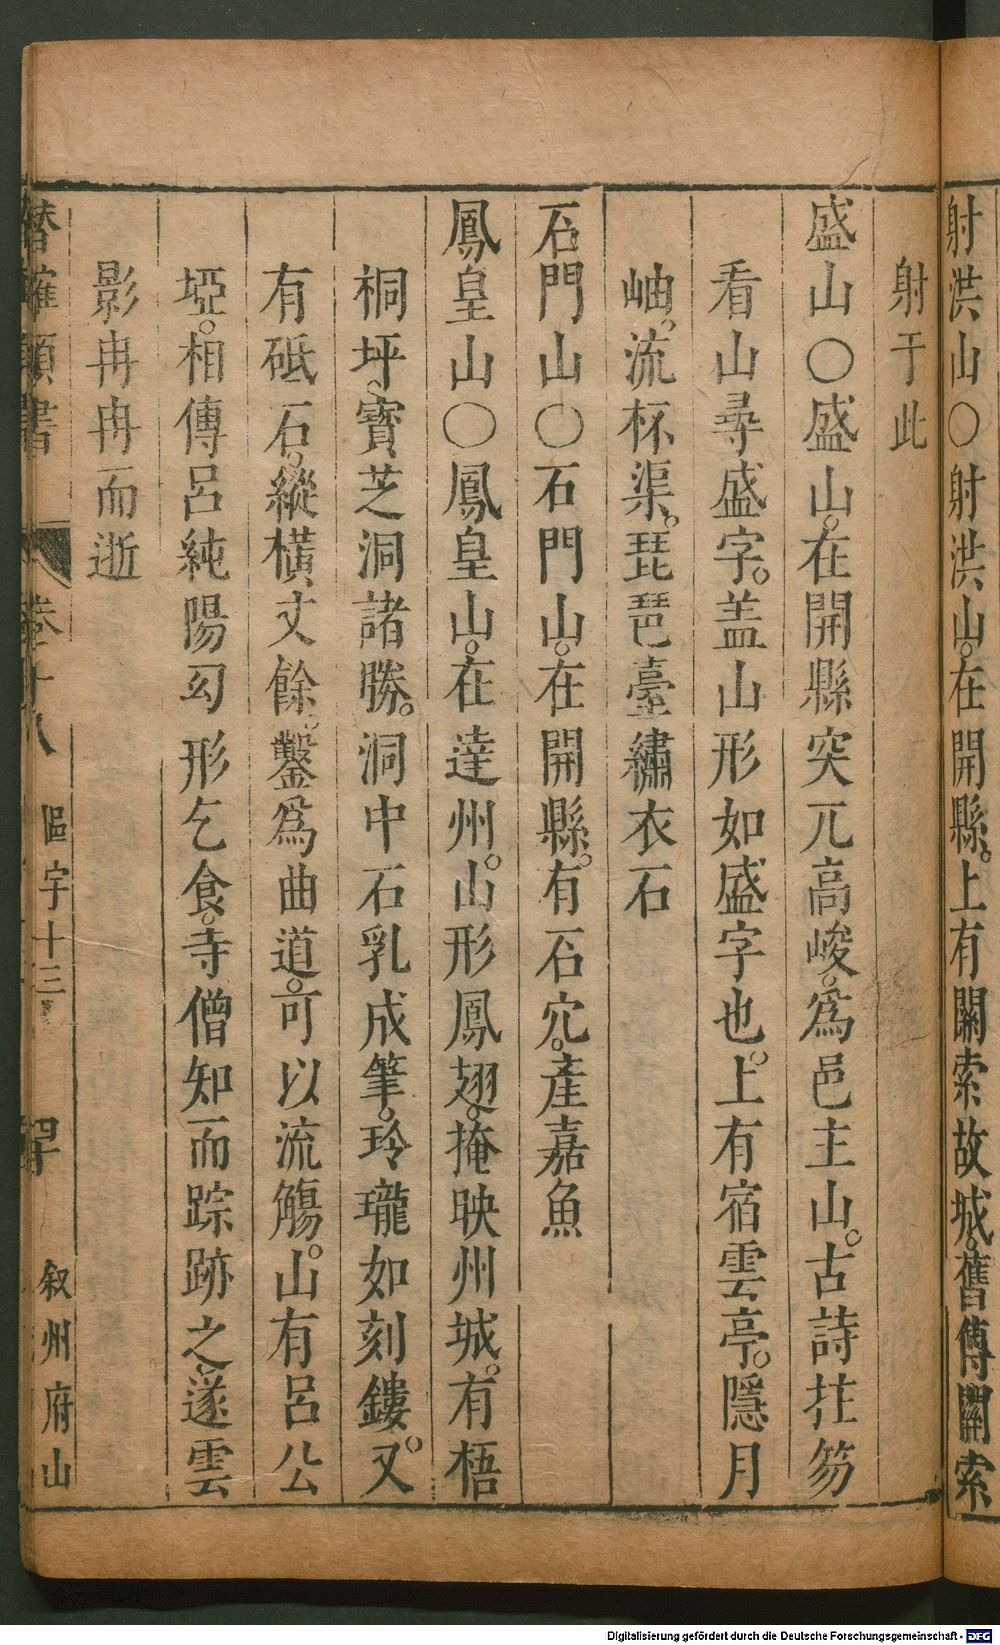 射洪山○射洪山。在開縣。上有關索故城。舊傳關索
射于此
盛山○盛山。在開縣突兀高峻。爲邑主山。古詩拄笏
看山尋盛字。盖山形如盛字也。上有宿雲亭。隱月
岫。流杯渠。琵琶臺繡衣石
石門山○石門山。在開縣。有石穴。產嘉魚
鳳皇山○鳳皇山。在達州。山形鳳翅。掩映州城。有梧
桐坪、寳芝洞諸勝。洞中石乳成筆。玲瓏如刻鏤。又
有砥石。縱橫丈餘。鑿爲曲道。可以流觴。山有呂公
埡。相傳呂純陽幻形乞食。寺僧知而踪跡之、遂雲
影冉冉而逝
潛確類書 卷二十八 區宇十三 叙州府山
Digitalisierung gefördert durch die Deutsche Forschungsgemeinschaft - DFG